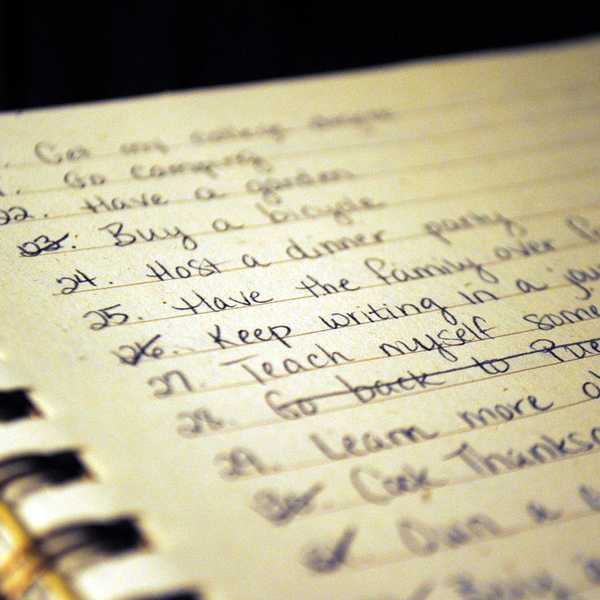 Get my college degree
Go camping
22. Have a garden
23. Buy a bicycle
24. Host a dinner party
25. Have the family over
26. Keep writing in a
27. Teach myself some
28. Go back to
29. Learn more
30. Cook Thanks
Own a
Buy